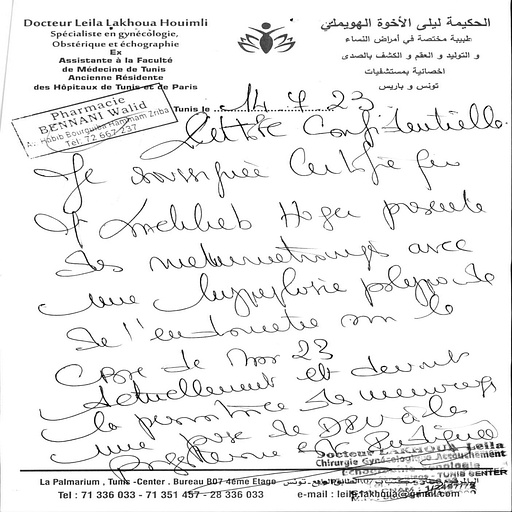 Docteur Leila Lakhoua Houimli
Spécialiste en gynécologie,
Obstétrique et échographie
Ex
Assistante à la Faculté
de Médecine de Tunis
Ancienne Résidente
des Hôpitaux de Tunis et de Paris
الحكيمة ليلى الأخوة الهويملي
طبيبة مختصة في أمراض النساء
و التوليد و العقم و الكشف بالصدى
اخصائية بمستشفيات
تونس و باريس
Pharmacie
BENNANI Walid
Av. Habib Bourguiba Hammam Zriba
Tel: 72 667 237
Tunis le 14 7 23
Lettre Confidentielle
Je soussignée Certifie que
Hager présente
des métrorragies avec
une hyperplasie polypoide
de l'endomètre sur le
de Nov 23
Actuellement et devant
la persistance des
une pose de DIU à la
progesterone est
Docteur LAKHOUA Leila
Chirurgie Gynécologique Accouchement
TUNIS CENTER
La Palmarium , Tunis -Center , Bureau B07 4ème Etage
Tel : 71 336 033 - 71 351 457 - 28 336 033
e-mail : leila.lakhoua@gmail.com